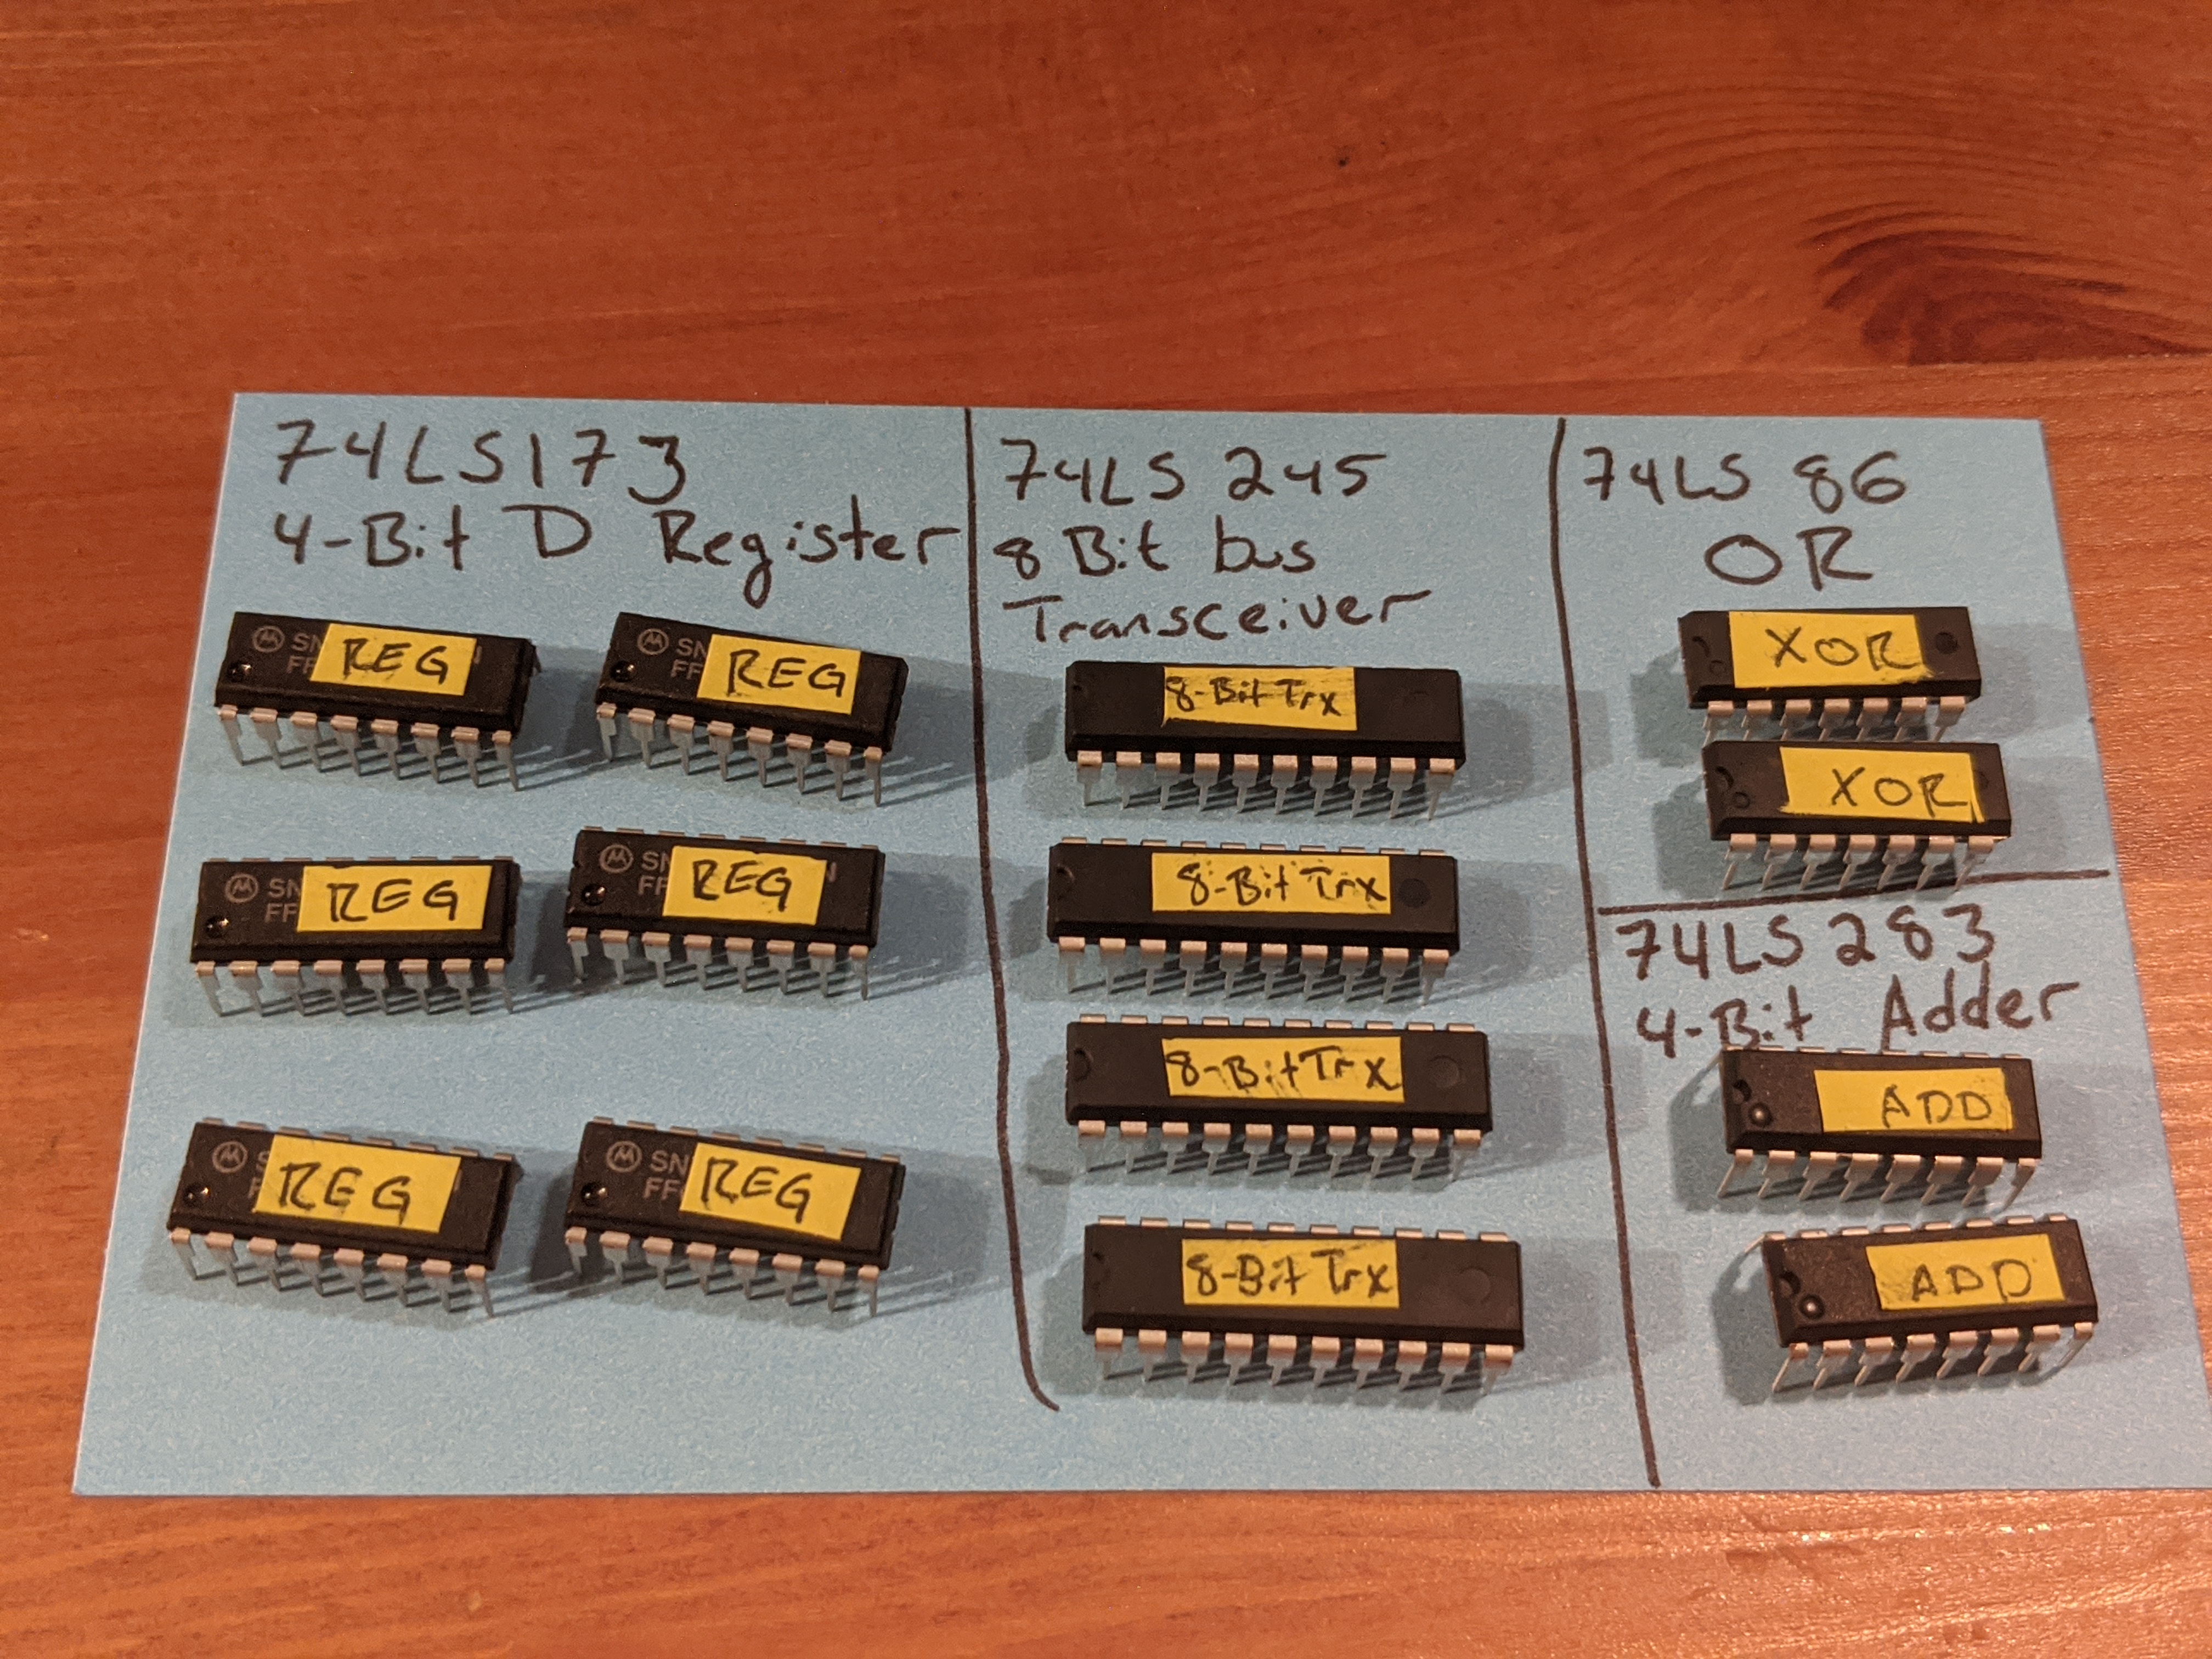 74LS173
4-Bit D Register
SN REG N
FF
SN REG
FF
SN REG
FF
SN REG N
FF
REG
SN REG
FF
74LS 245
8 Bit bus
Transceiver
8-Bit Trx
8-Bit Trx
8-Bit Trx
8-Bit Trx
74LS 86
OR
XOR
XOR
74LS 283
4-Bit Adder
ADD
ADD